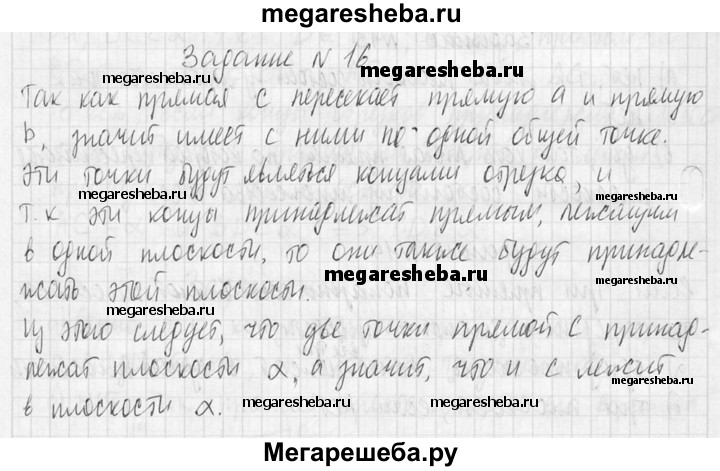 megaresheba.ru
Задание N 16
megaresheba.ru
megaresheba.ru
megaresheba.ru
Так как прямая c пересекает прямую a и прямую
b, значит имеет с ними по одной общей точке.
megaresheba.ru
megaresheba.ru
Эти точки будут являться концами отрезка, и
т.к эти концы принадлежат прямым, лежащим
megaresheba.ru
megaresheba.ru
в одной плоскости, то они также будут принадле-
megaresheba.ru
megaresheba.ru
жать этой плоскости.
megaresheba.ru
Из этого следует, что две точки прямой c принад-
лежат плоскости α, а значит, что и c лежит
в плоскости α.
megaresheba.ru
megaresheba.ru
Мегарешеба.ру